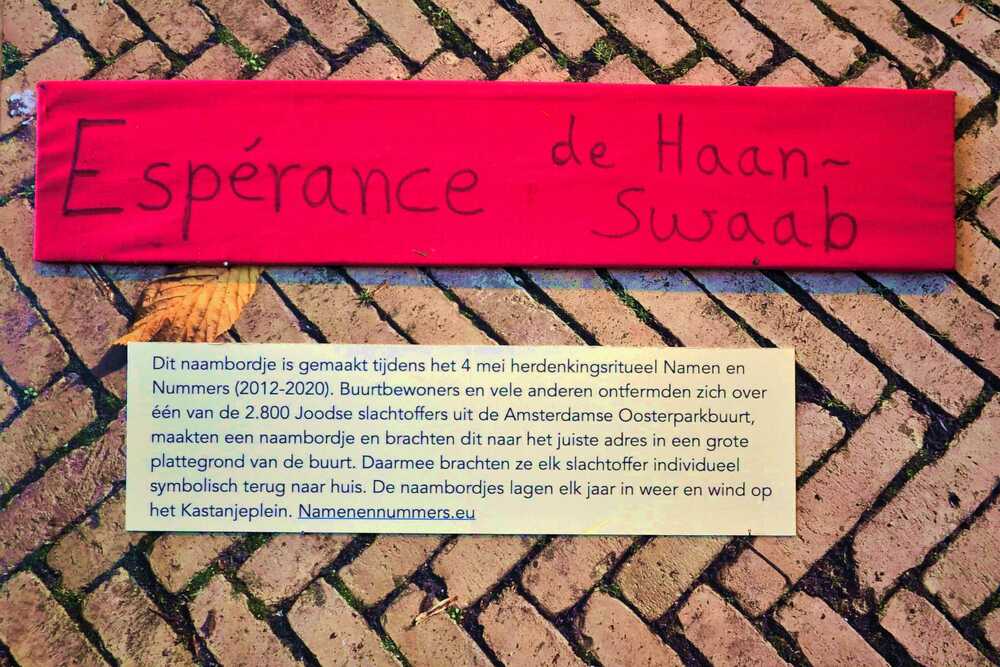 Espérance de Haan-
Swaab
Dit naambordje is gemaakt tijdens het 4 mei herdenkingsritueel Namen en
Nummers (2012-2020). Buurtbewoners en vele anderen ontfermden zich over
één van de 2.800 Joodse slachtoffers uit de Amsterdamse Oosterparkbuurt,
maakten een naambordje en brachten dit naar het juiste adres in een grote
plattegrond van de buurt. Daarmee brachten ze elk slachtoffer individueel
symbolisch terug naar huis. De naambordjes lagen elk jaar in weer en wind op
het Kastanjeplein. Namenennummers.eu